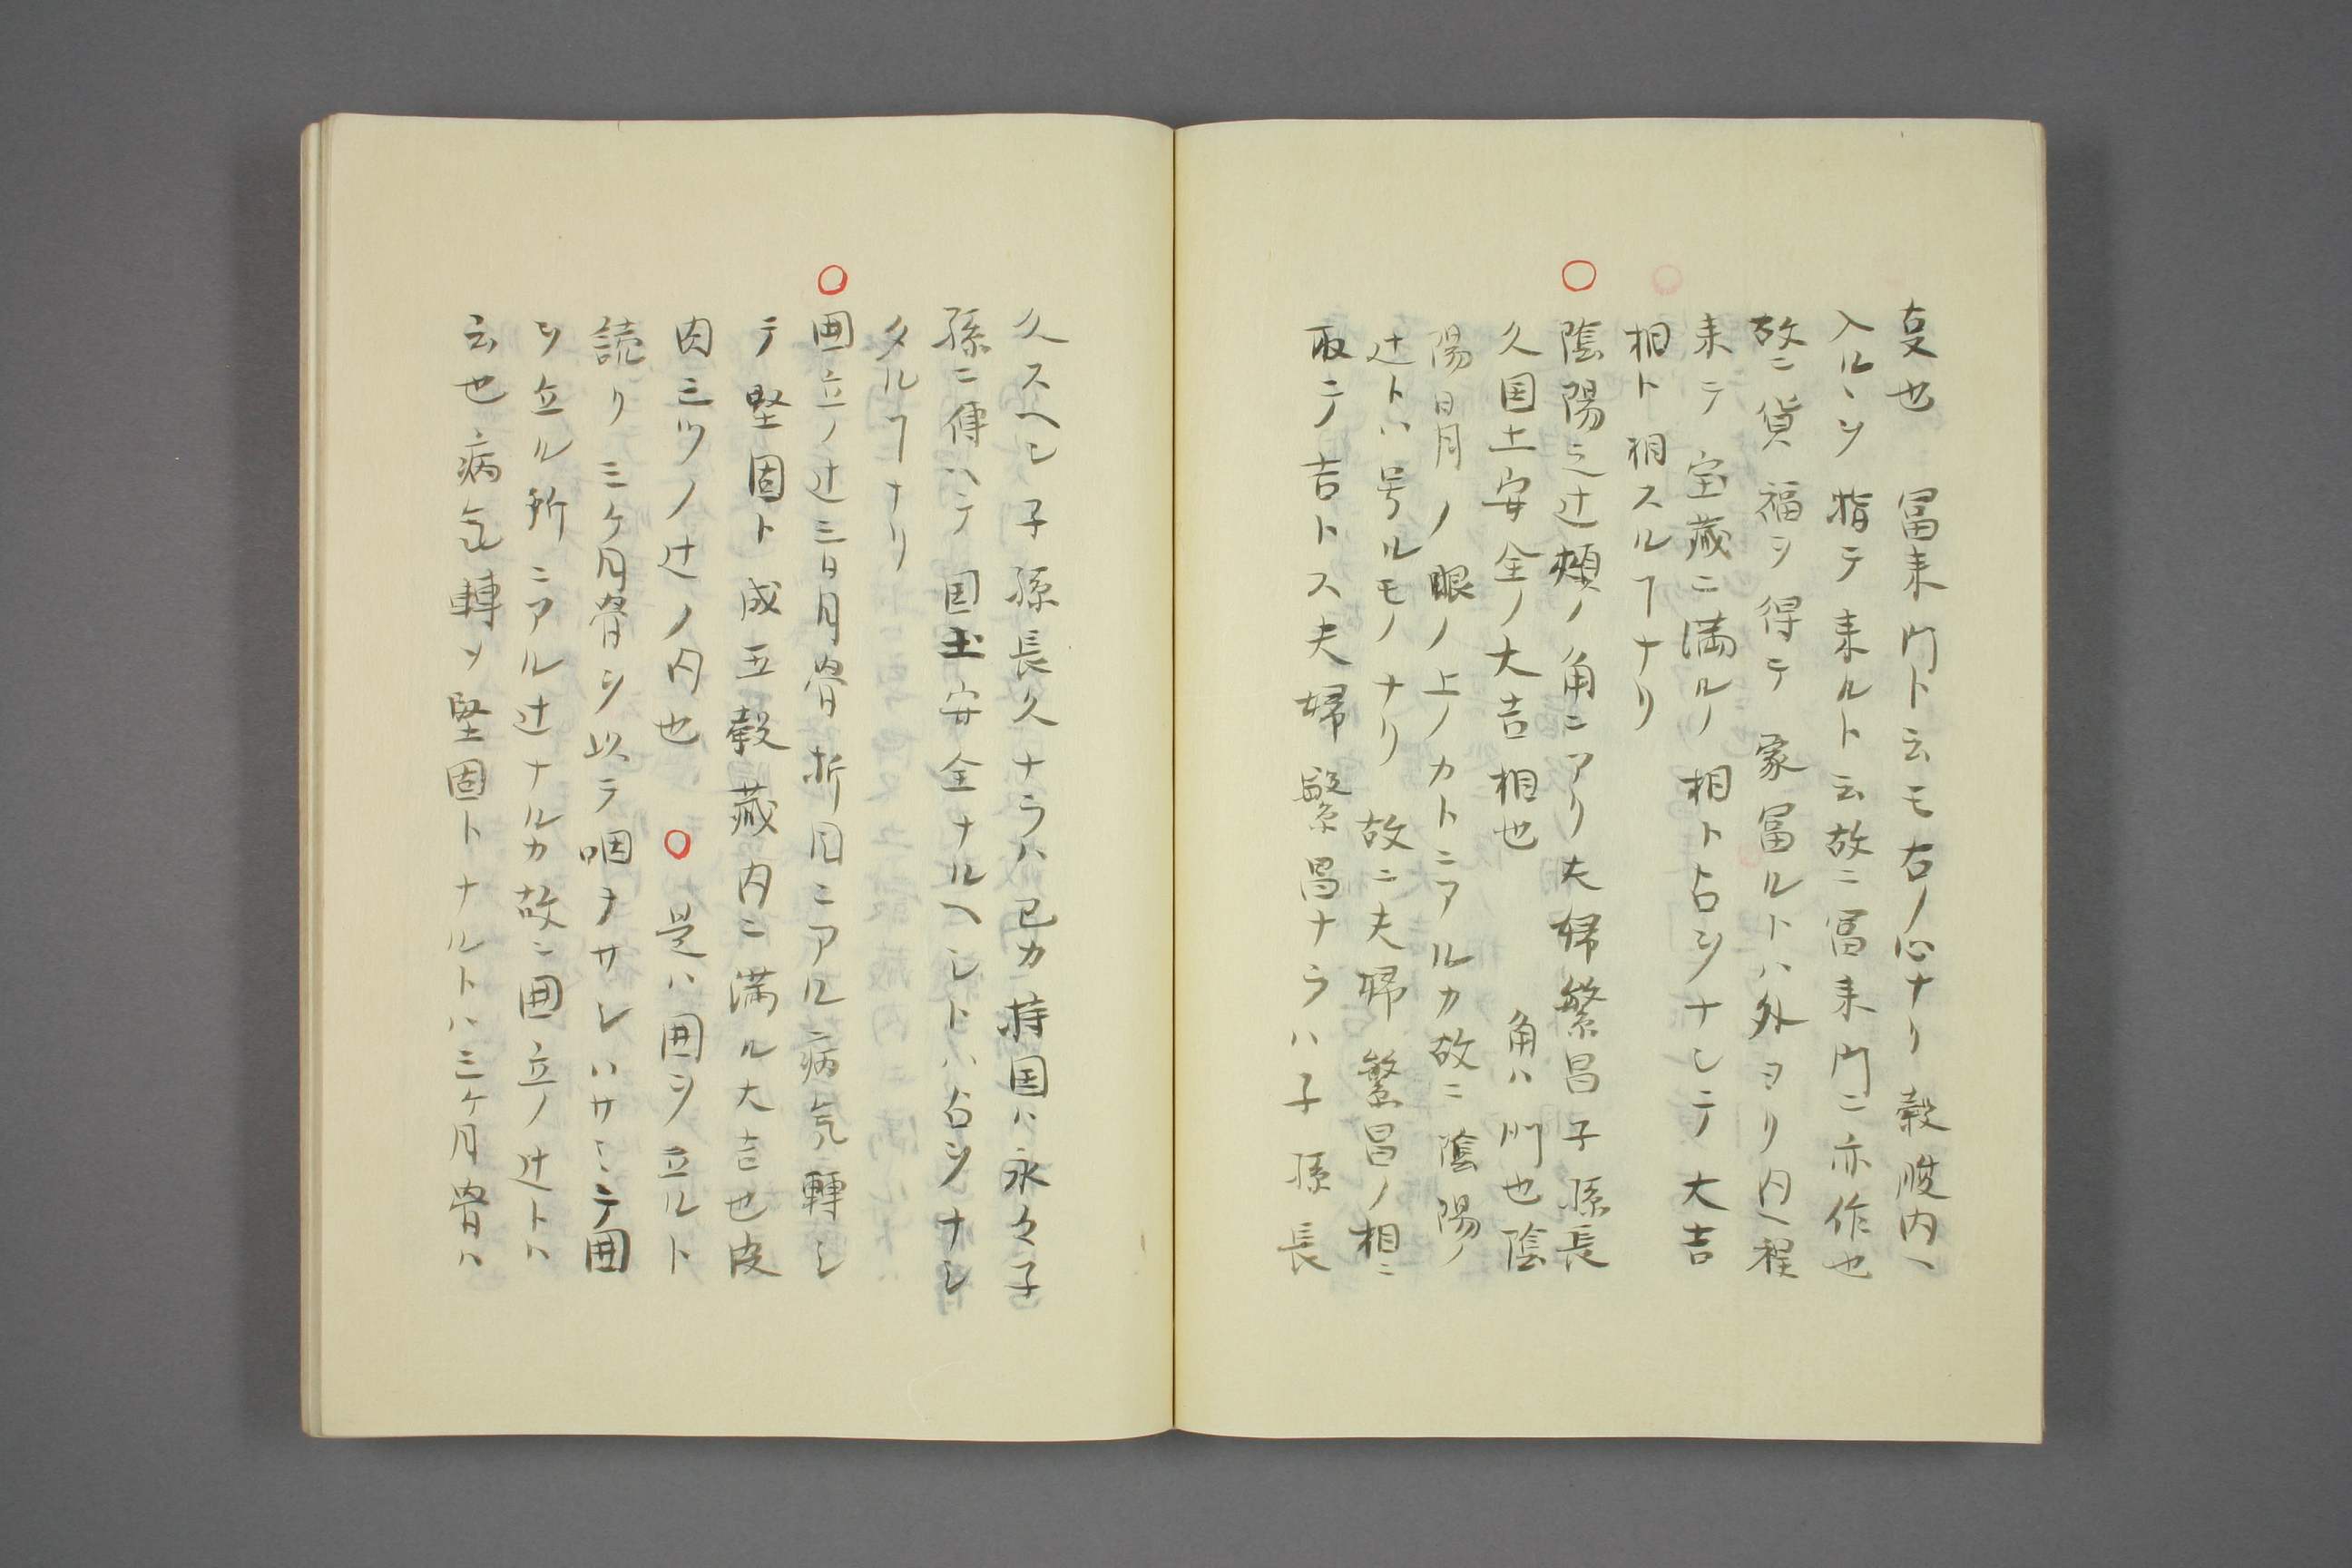 叓也 冨来門ト云モ右ノ心ナリ 穀腹内ヘ
入ルヽヲ 指テ 来ルト云故ニ冨来門ニ亦作也
故ニ貨福ヲ得テ 家冨ルトハ外ヨリ内ヘ程
来テ 宝蔵ニ満ルノ 相ト占ヲナシテ 大吉
相ト 相スルヿナリ
〇陰陽之辻頬ノ角ニアリ夫婦繁昌子孫長
久国土安全ノ大吉相也 角ハ門也陰
陽日月ノ眼ノ上ノカトニアルカ故ニ陰陽ノ
辻トハ号ルモノナリ 故ニ夫婦繁昌ノ相ニ
取テ吉トス夫婦繁昌ナラハ子孫長
久スヘシ子孫長久ナラハ己カ持国ハ永々子
孫ニ傳ハテ 国土安全ナルヘシトハ占ヲナシ
タルヿナリ
〇囲立ノ辻三日月骨折目ニアル病気轉シ
テ堅固ト成五穀蔵内ニ満ル大吉也皮
肉三ツノ辻ノ内也 〇是ハ囲ヲ立ルト
読リ三ケ月骨ヲ以テ咽ナサシハサミテ囲
ヲ立ル所ニアル辻ナルカ故ニ囲立ノ辻トハ
云也病気轉ソ堅固トナルトハ三ケ月骨ハ